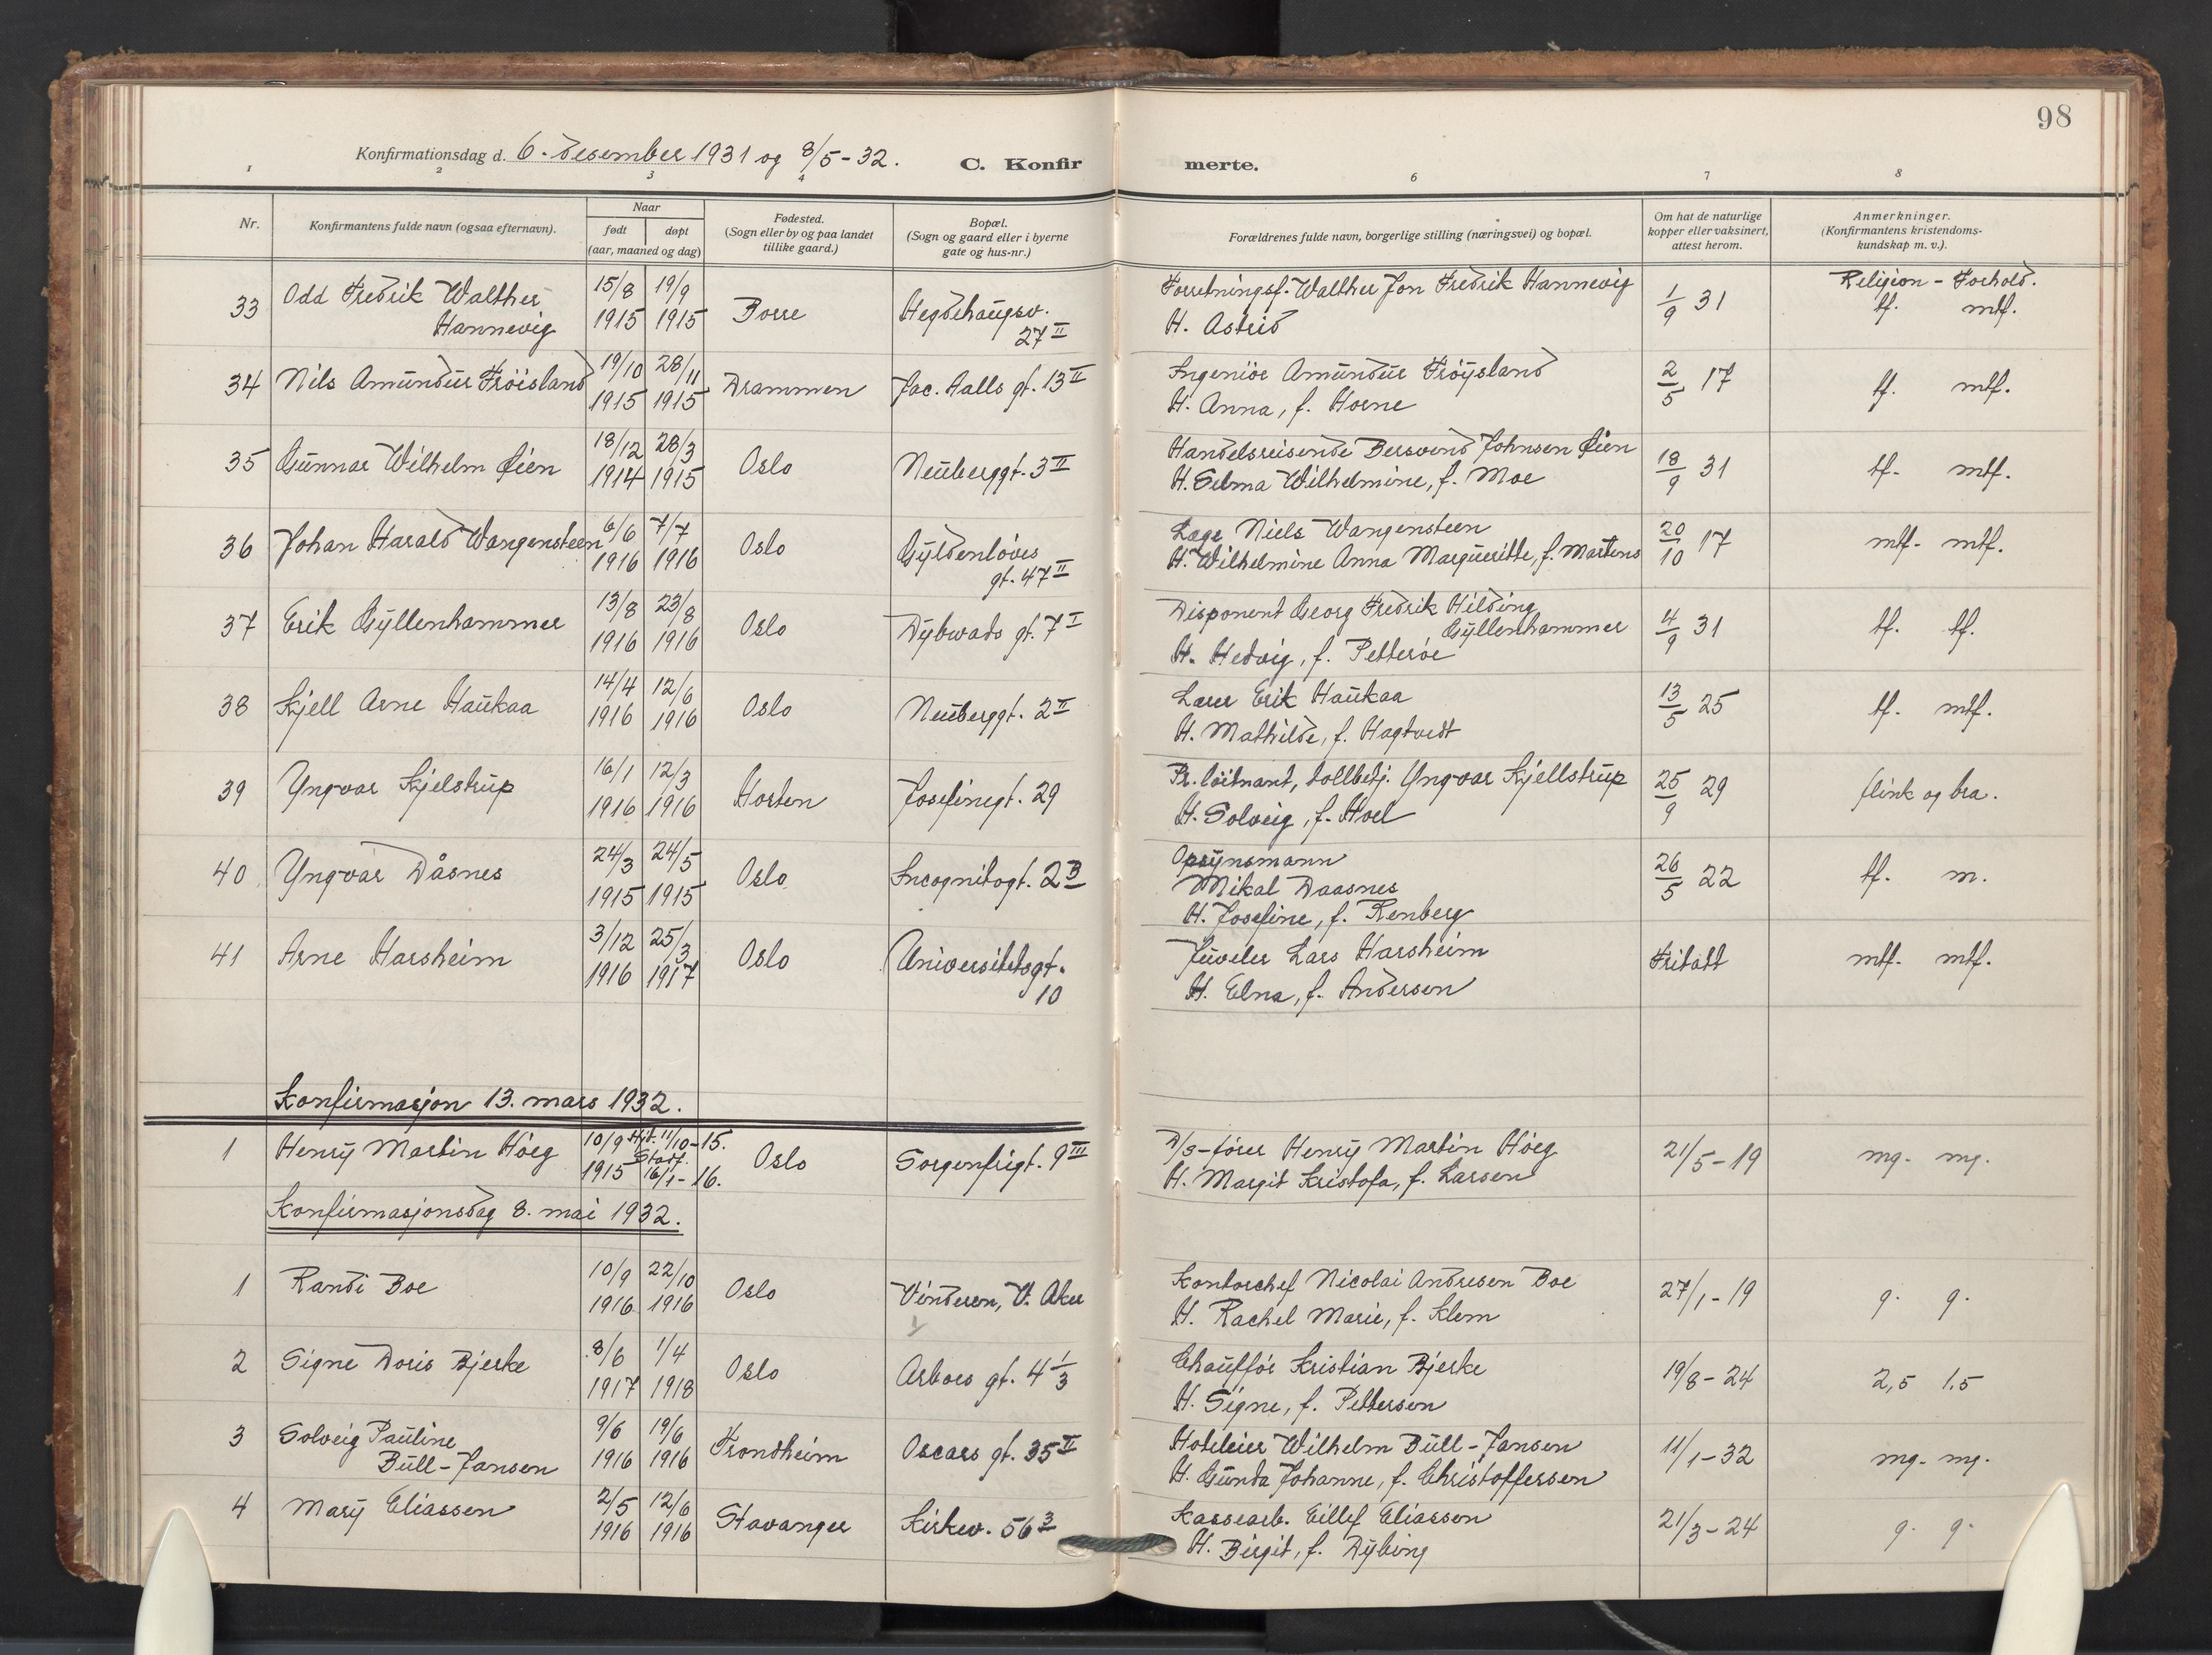 98
Konfirmationsdag d. 6. desember 1931 og 8/5-32. C. Konfirmerte.
1 2 3 4 6 7 8
Nr. Konfirmantens fulde navn (ogsaa efternavn). Naar født døpt (aar, maaned og dag) Fødested. (Sogn eller by og paa landet tillike gaard.) Bopæl. (Sogn og gaard eller i byerne gate og hus-nr.) Forældrenes fulde navn, borgerlige stilling (næringsvei) og bopæl. Om hat de naturlige kopper eller vaksinert, attest herom. Anmerkninger. (Konfirmantens kristendoms-kundskap m. v.).
Religion - Forhold.
33 Odd Fredrik Walther 15/8 19/9 Borre Hegdehaugsv. Forretningsf. Walther Jon Fredrik Hannevig 1/9 31 tf. mtf.
Hannevig 1915 1915 27 II H. Astrid
34 Nils Amundur Fröisland 19/10 28/11 Drammen Jac. Aalls gt. 13 II Ingeniör Amundur Fröysland 2/5 17 tf. mtf.
1915 1915 H. Anna, f. Horne
35 Gunnar Wilhelm Øien 18/12 28/3 Oslo Neuberggt. 3 II Handelsreisende Bersvend Johnsen Øien 18/9 31 tf. mtf.
1914 1915 H. Selma Wilhelmine, f. Moe
36 Johan Harald Wangensteen 6/6 7/7 Oslo Gyldenløves Læge Niels Wangensteen 20/10 17 mtf. mtf.
1916 1916 gt. 47 II H. Wilhelmine Anna Margueritte, f. Martens
37 Erik Gyllenhammer 13/8 23/8 Oslo Dybwads gt. 7 I Disponent Georg Fredrik Hilding 4/9 31 tf. tf.
1916 1916 Gyllenhammer
H. Hedvig, f. Petterøe
38 Kjell Arne Haukaa 14/4 12/6 Oslo Neuberggt. 2 II Lærer Erik Haukaa 13/5 25 tf. mtf.
1916 1916 H. Mathilde, f. Hagtvedt
39 Yngvar Kjelstrup 16/1 12/3 Horten Josefinegt. 29 Pr. löitnant, tollbetj. Yngvar Kjellstrup 25/9 29 flink og bra.
1916 1916 H. Solveig, f. Hoel
40 Yngvar Dåsnes 24/3 24/5 Oslo Incognitogt. 2 B Opsynsmann 26/5 22 tf. m.
1915 1915 Mikal Daasnes
H. Josefine, f. Renberg
41 Arne Harsheim 3/12 25/3 Oslo Universitetsgt. Juveler Lars Harsheim Fritatt mtf. mtf.
1916 1917 10 H. Elna, f. Andersen
Konfirmasjon 13. mars 1932.
1 Henry Martin Höeg 10/9 Hjd. 11/10-15. Oslo Sorgenfrigt. 9 III D/S-förer Henry Martin Höeg 21/5-19 mg. mg.
1915 Stadf. 16/1-16. H. Margit Kristofa, f. Larsen
Konfirmasjonsdag 8. mai 1932.
1 Randi Boe 10/9 22/10 Oslo Vinderen, V. Aker Kontorchef Nicolai Andresen Boe 27/1-19 g. g.
1916 1916 H. Rachel Marie, f. Klem
2 Signe Doris Bjerke 8/6 1/4 Oslo Arbos gt. 4 1/3 Chaufför Kristian Bjerke 19/8-24 2,5 1,5
1917 1918 H. Signe, f. Pettersen
3 Solveig Pauline 9/6 19/6 Trondheim Oscars gt. 35 II Hoteleier Wilhelm Bull-Jansen 11/1-32 mg. mg.
Bull-Jansen 1916 1916 H. Gunda Johanne, f. Christoffersen
4 Mary Eliassen 2/5 12/6 Stavanger Kirkev. 56 3 Kassearb. Eillef Eliassen 21/3-24 g. g.
1916 1916 H. Birgit, f. Dybing